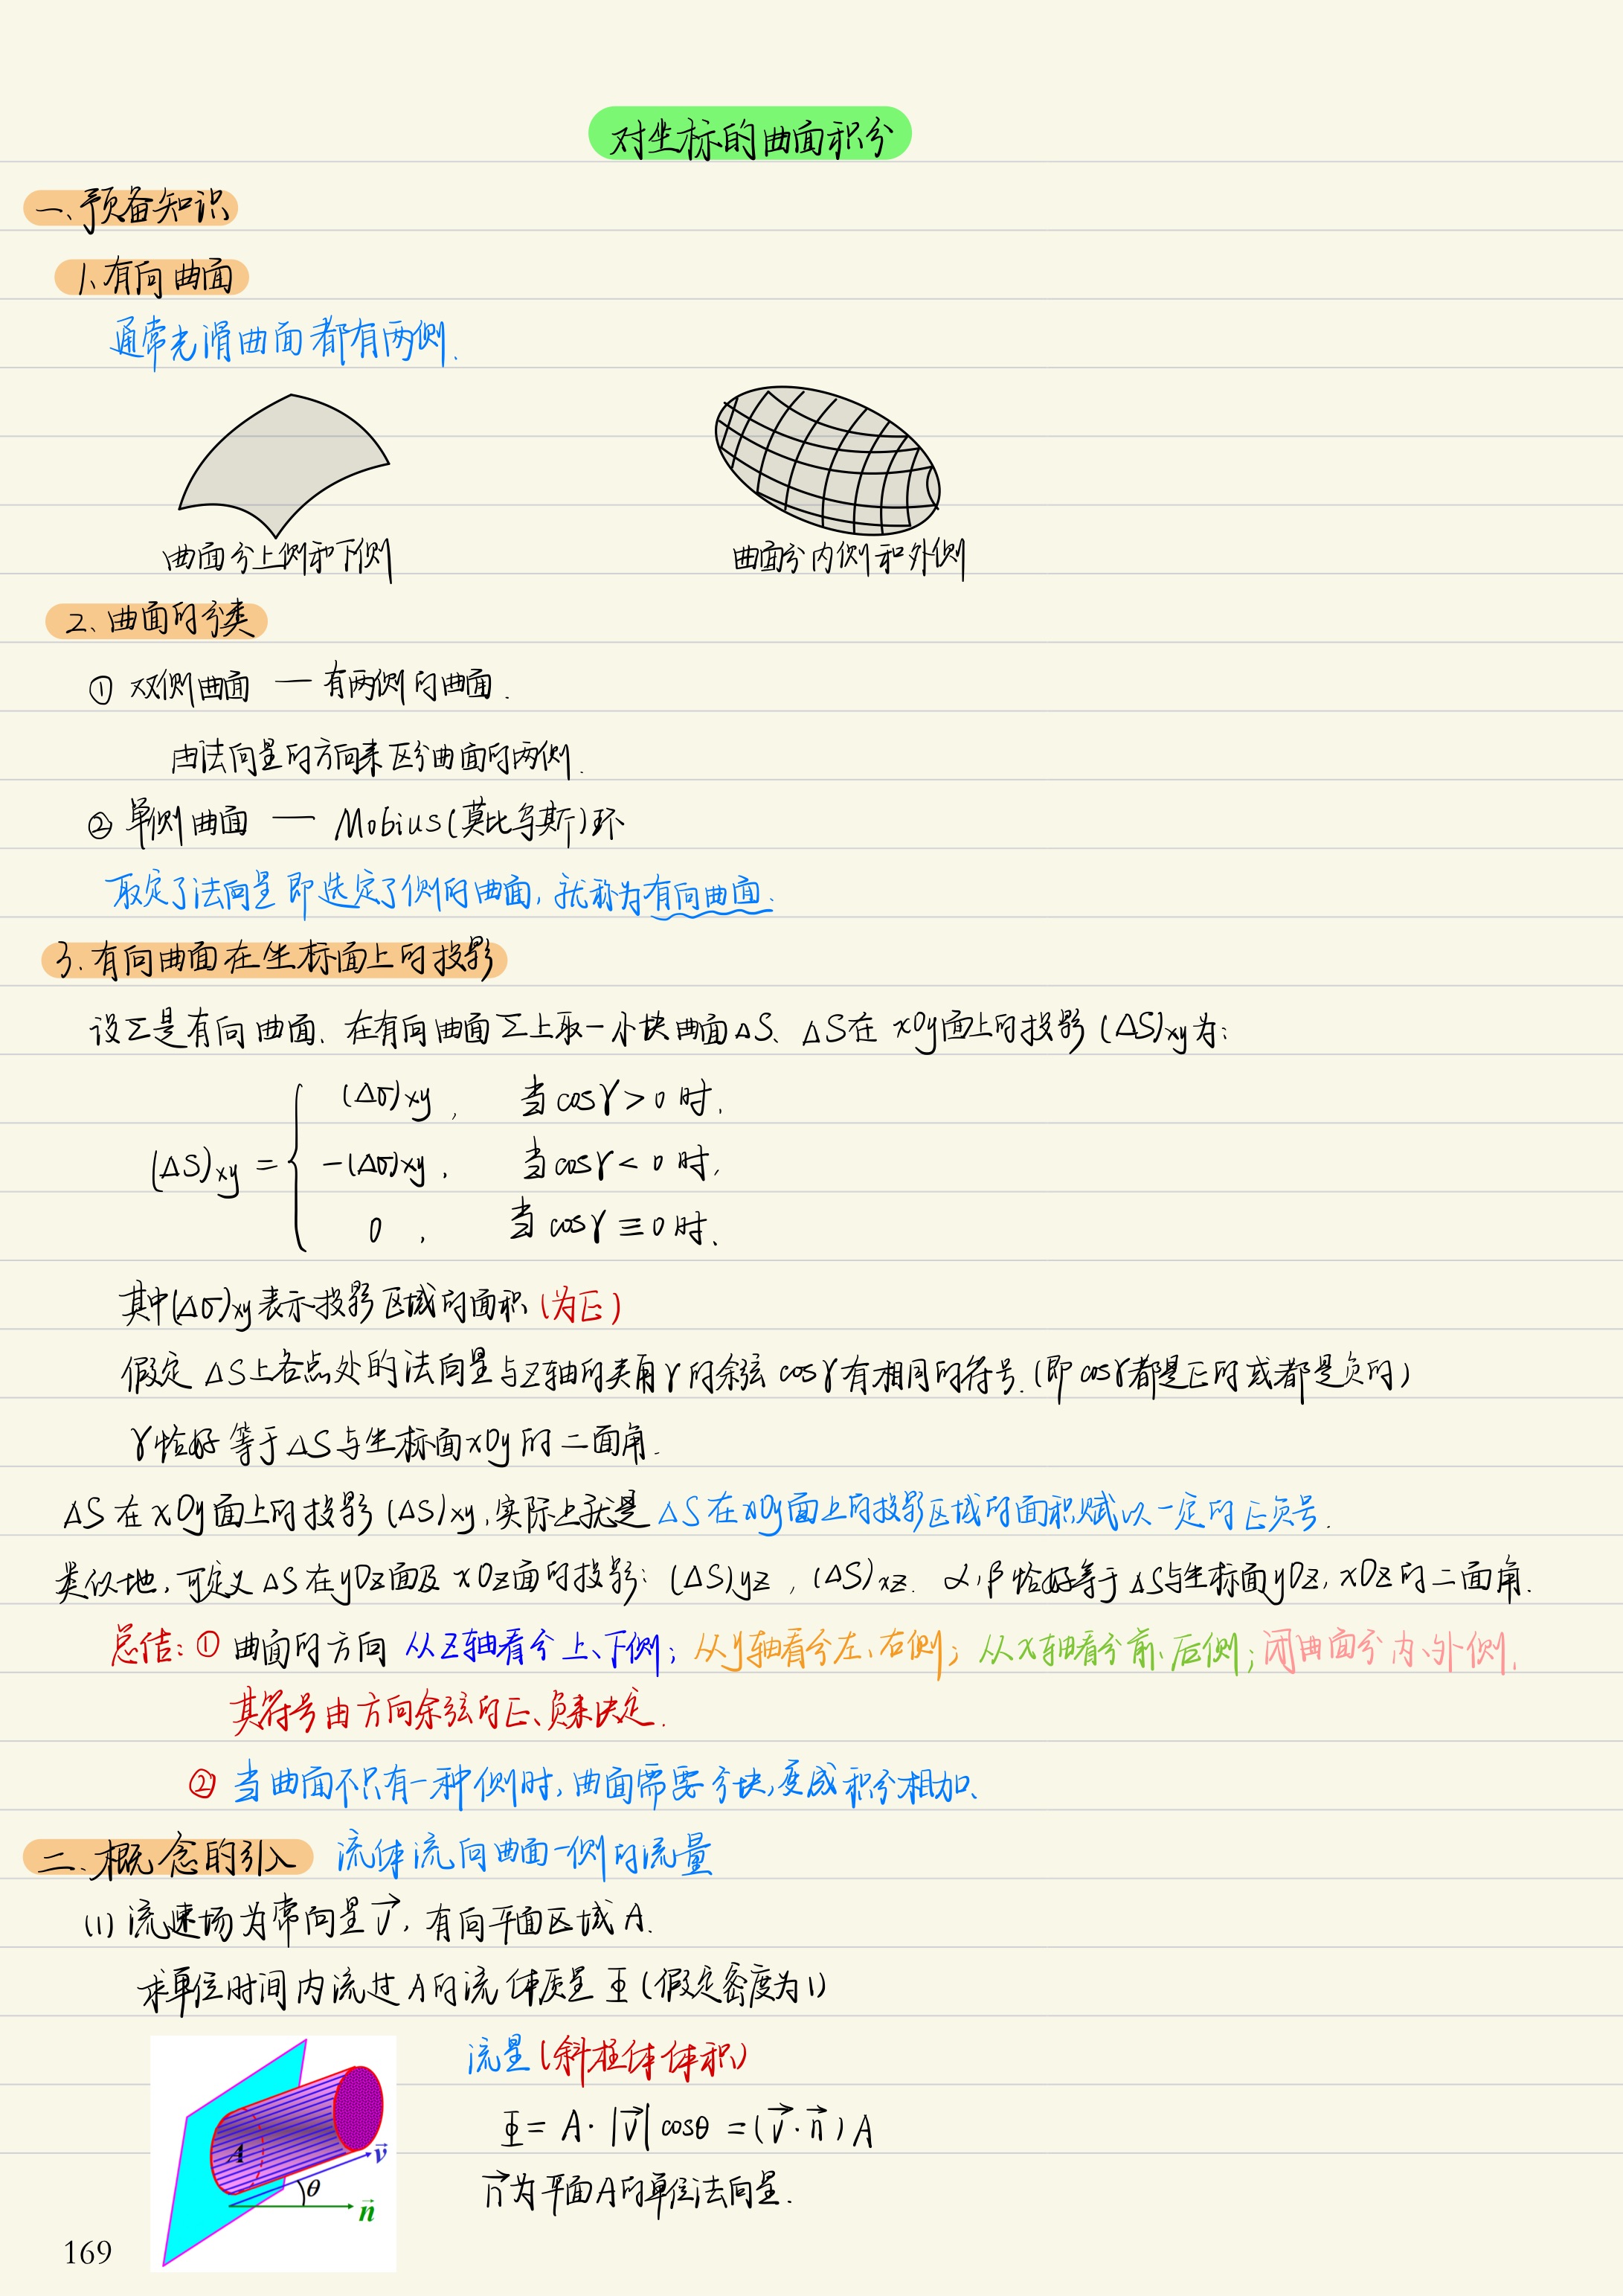 对坐标的曲面积分
一、预备知识
1、有向曲面
通常光滑曲面都有两侧.
曲面分上侧和下侧
曲面分内侧和外侧
2、曲面的分类
① 双侧曲面 — 有两侧的曲面.
由法向量的方向来区分曲面的两侧.
② 单侧曲面 — Mobius(莫比乌斯)环
取定了法向量即选定了侧的曲面, 就称为有向曲面.
3.有向曲面在坐标面上的投影
设Σ是有向曲面. 在有向曲面Σ上取一小块曲面ΔS、ΔS在 xOy面上的投影 (ΔS)xy为:
(Δσ)xy , 当 cosγ > 0 时.
(ΔS)xy = { -(Δσ)xy , 当 cosγ < 0 时,
0 , 当 cosγ ≡ 0 时、
其中(Δσ)xy表示投影区域的面积 (为正)
假定 ΔS上各点处的法向量与z轴的夹角γ的余弦 cosγ有相同的符号.(即 cosγ都是正的或都是负的)
γ恰好等于ΔS与坐标面xOy的二面角.
ΔS 在 xOy面上的投影 (ΔS)xy,实际上就是 ΔS在xOy面上的投影区域的面积赋以一定的正负号.
类似地, 可定义 ΔS在yOz面及 xOz面的投影: (ΔS)yz , (ΔS)xz. α,β恰好等于ΔS与坐标面yOz, xOz的二面角.
总结: ① 曲面的方向 从z轴看分 上、下侧; 从y轴看分左、右侧; 从x轴看分前、后侧; 闭曲面分内、外侧.
其符号由方向余弦的正、负来决定.
② 当曲面不只有一种侧时, 曲面需要分块,变成积分相加、
二、概念的引入 流体流向曲面一侧的流量
(1) 流速场为常向量 v⃗, 有向平面区域A.
求单位时间内流过A的流体质量 Φ (假定密度为1)
流量(斜柱体体积)
Φ = A · |v⃗| cosθ = (v⃗ · n⃗) A
n⃗为平面A的单位法向量.
A
v⃗
θ
n⃗
169